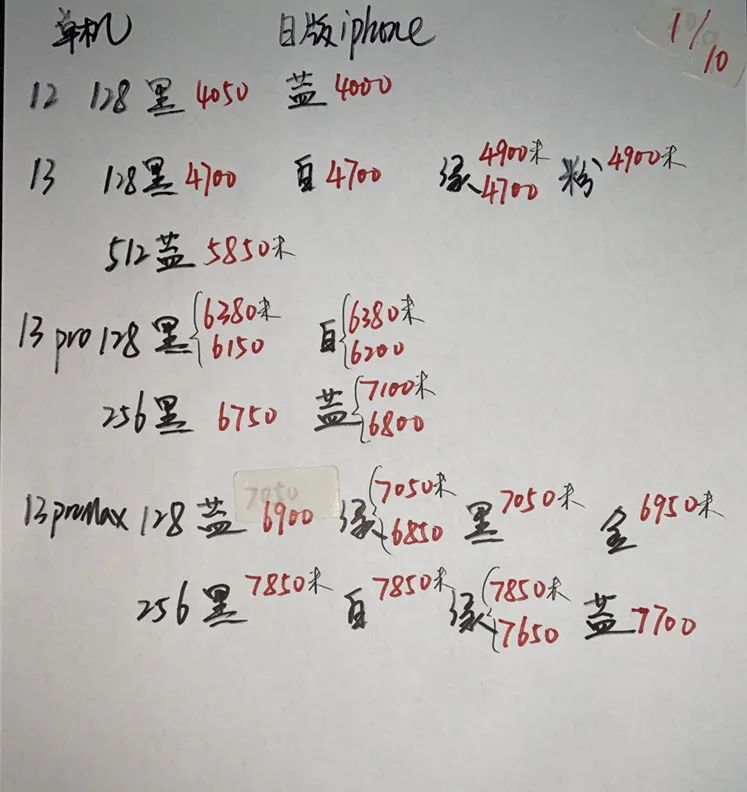 单机 日版iphone 1/10
12 128 黑 4050 蓝 4000
13 128 黑 4700 白 4700 绿 4900未 4700 粉 4900未
512 蓝 5850未
13 pro 128 黑 6380未 6150 白 6380未 6200
256 黑 6750 蓝 7100未 6800
13 proMax 128 蓝 6900 绿 7050未 6850 黑 7050未 金 6950未
256 黑 7850未 白 7850未 绿 7850未 7650 蓝 7700